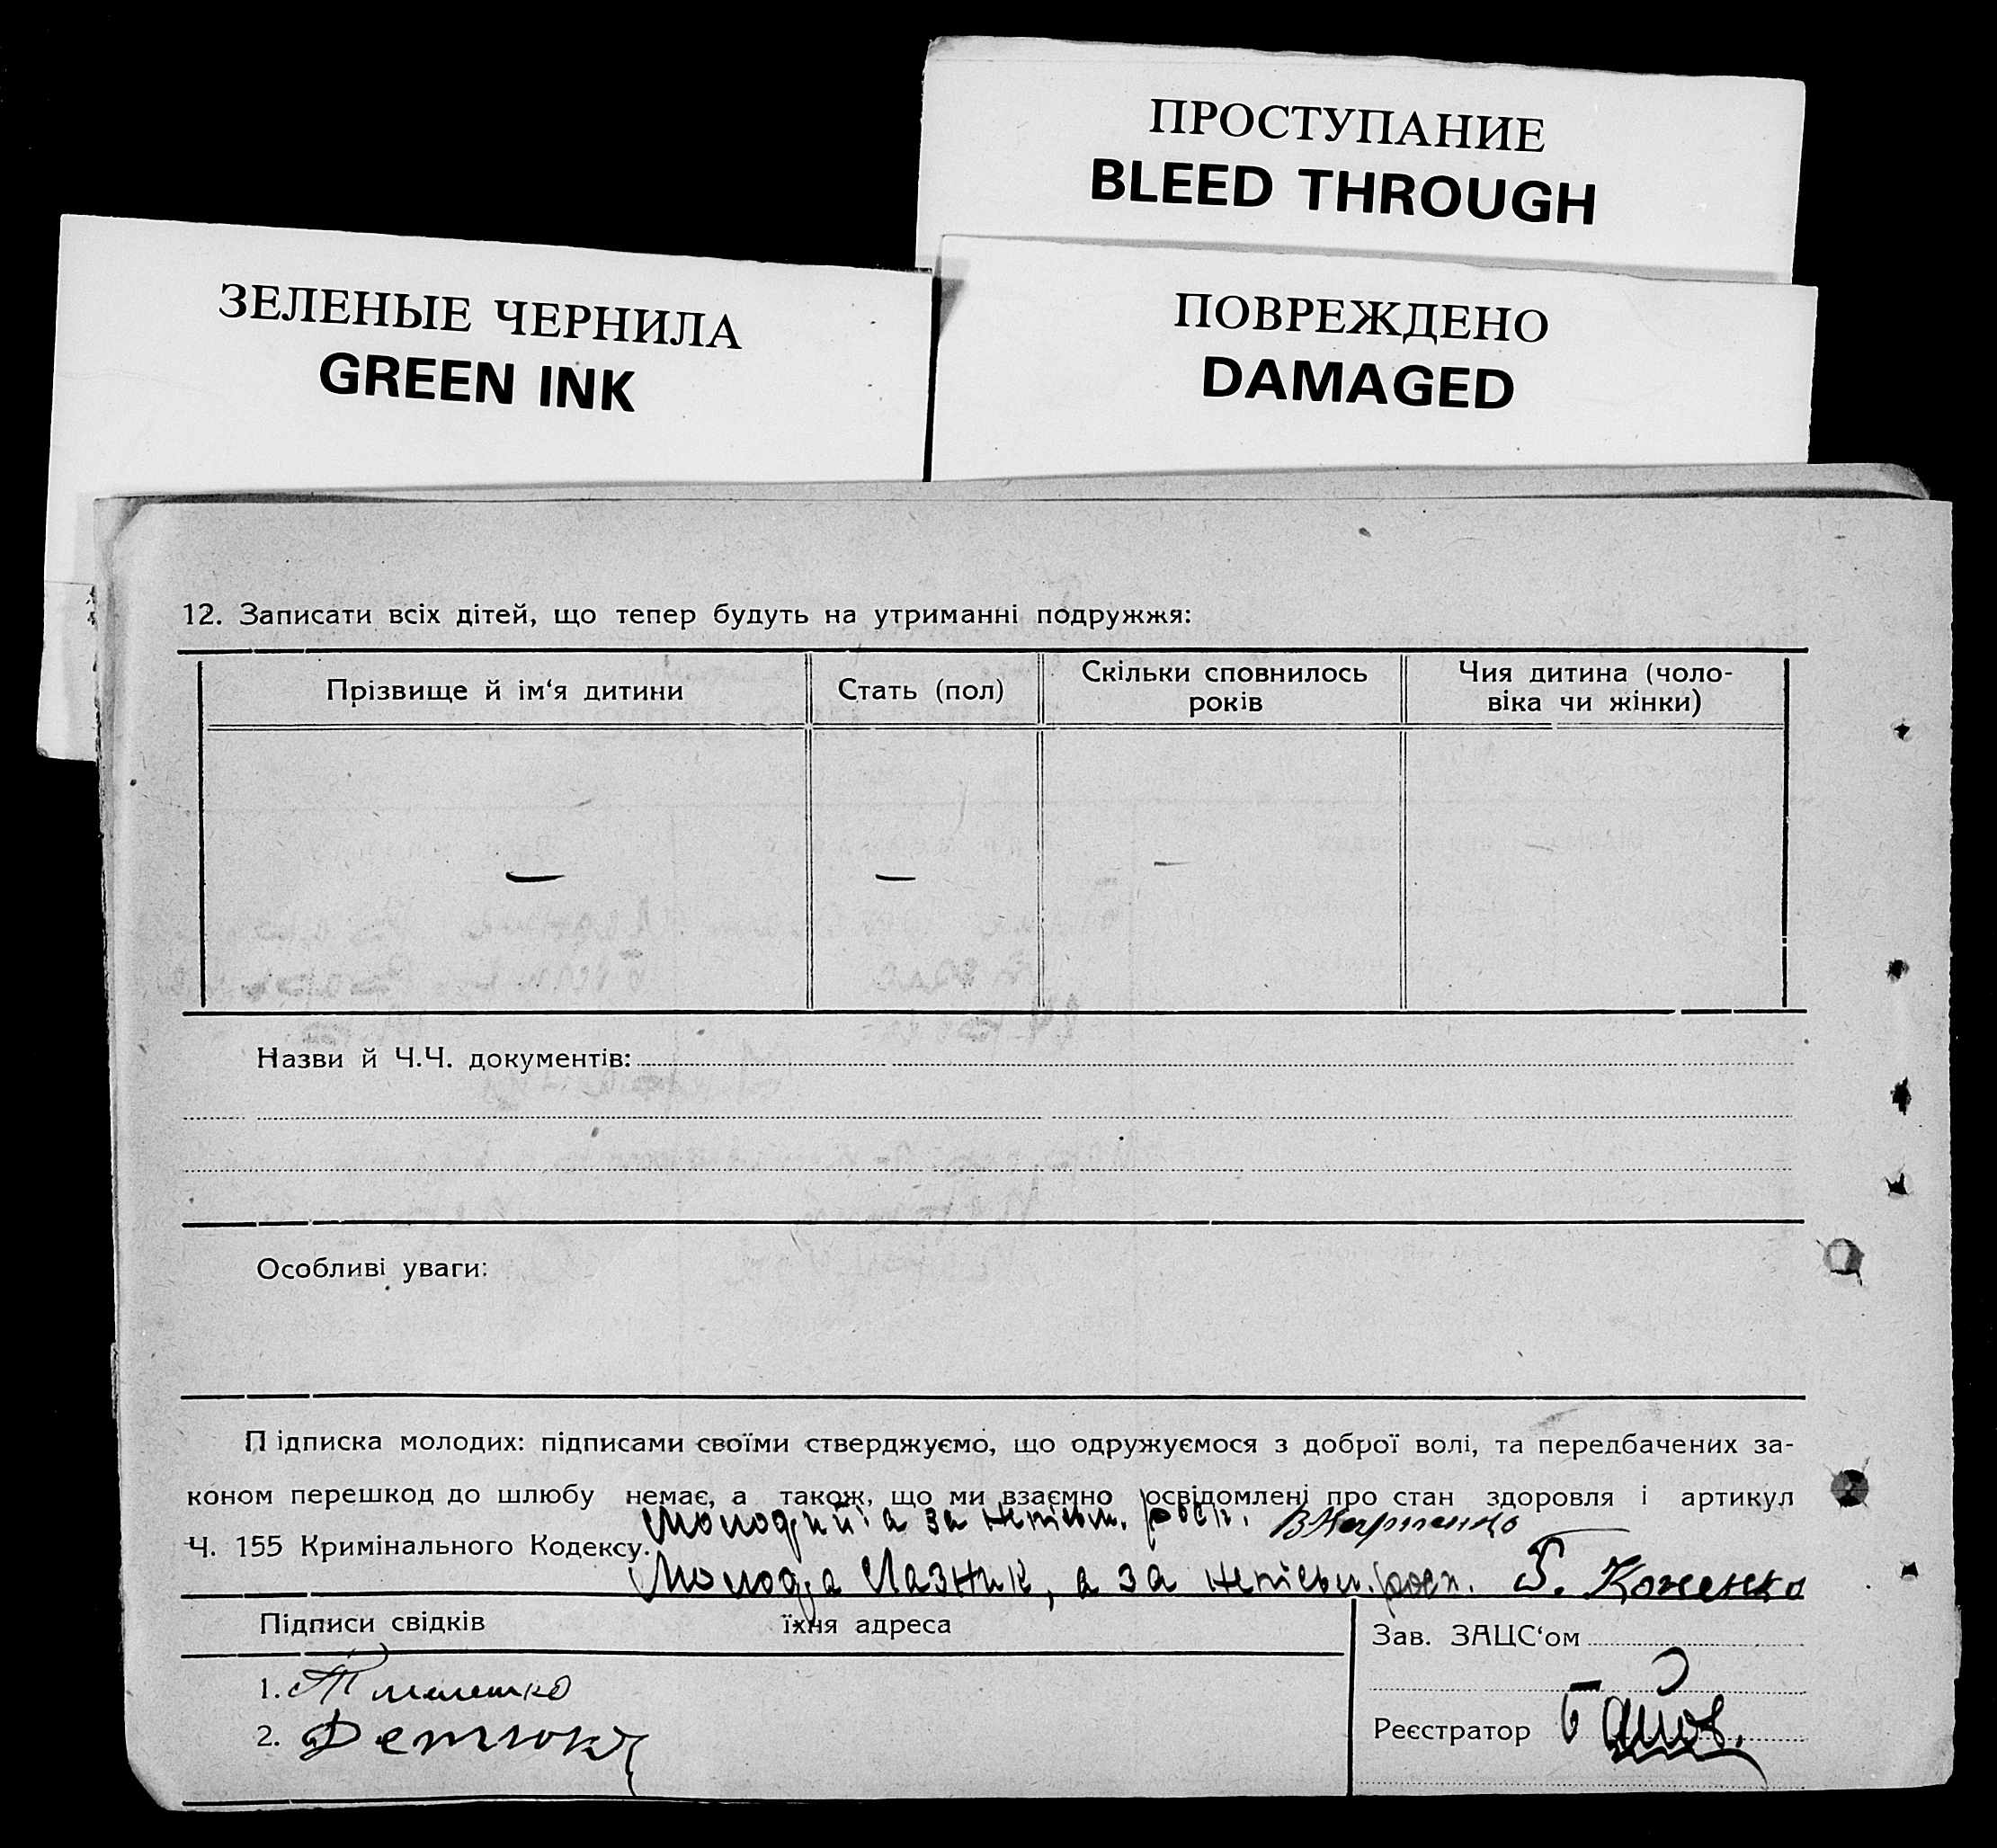 ПРОСТУПАНИЕ
BLEED THROUGH
ЗЕЛЕНЫЕ ЧЕРНИЛА
GREEN INK
ПОВРЕЖДЕНО
DAMAGED
12. Записати всіх дітей, що тепер будуть на утриманні подружжя:
Прізвище й ім‘я дитини
Стать (пол)
Скільки сповнилось
років
Чия дитина (чоло-
віка чи жінки)
—
—
—
Назви й Ч.Ч. документів:
Особливі уваги:
Підписка молодих: підписами своїми стверджуємо, що одружуємося з доброї волі, та передбачених за-
коном перешкод до шлюбу немає, а також, що ми взаємно освідомлені про стан здоровля і артикул
Молодий: а за неписьм. росп.
Ч. 155 Кримінального Кодексу.
Молода Лазник, а за неписьм. росп.
Підписи свідків
їхня адреса
Зав. ЗАЦС‘ом
1.
2.
Реєстратор